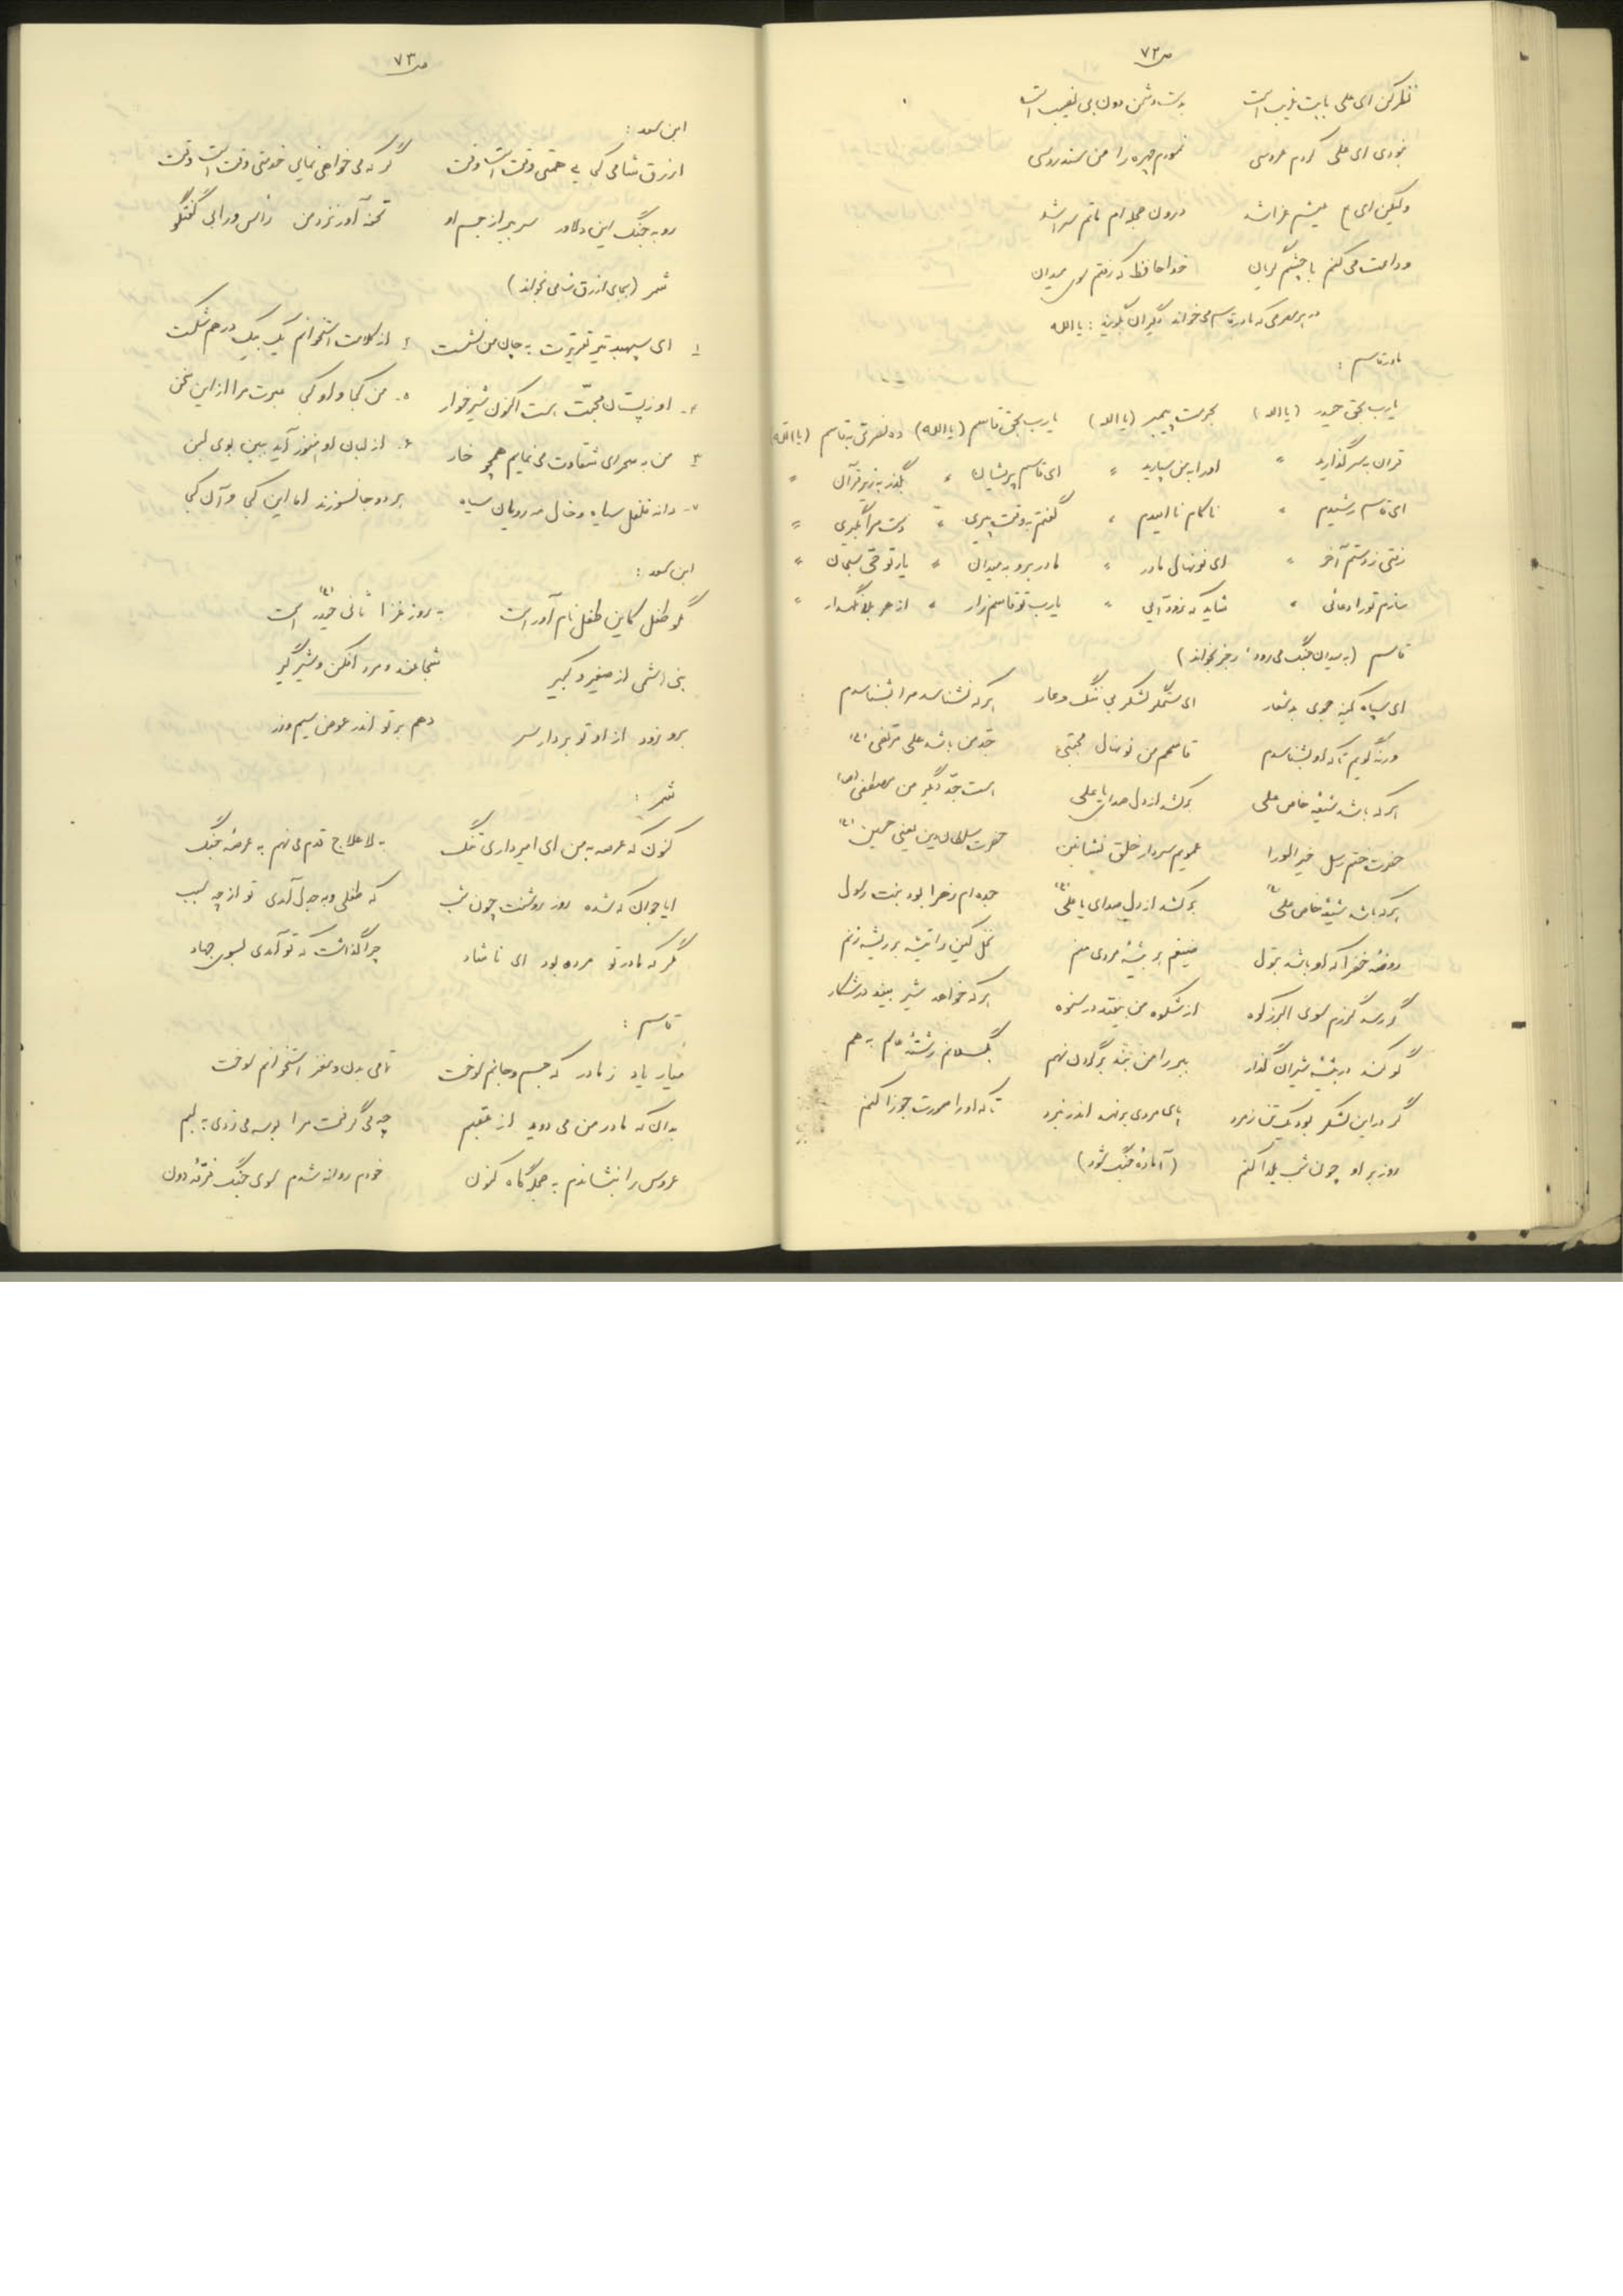 ص ۷۲
نظر کن ای علی بابت غریب است بدست دشمن دون بی نصیب است
نبودی ای علی کردم عروسی نمودم چهره را من سندروسی
ولیکن ای عیشم عزا شد درون حجله ام ماتم سرا شد
وداعت می کنم با چشم گریان خداحافظ که رفتم سوی میدان
در هر مصرعی که مادر قاسم می خواند دیگران بگویند : یا الله
مادر قاسم :
یارب بحق حیدر (یا الله) بحرمت پیمبر (یا الله) یارب بحق قاسم (یا الله) ده نصرتی به قاسم (یا الله)
قران به سر گذارید " او را به من سپارید " ای قاسم پریشان " بگذر به زیر قرآن "
ای قاسم رشیدم " ناکام نا امیدم " گفتم به وقت پیری " دست مرا بگیری "
رفتی ز دستم آخر " ای نونهال مادر " مادر برو به میدان " یار تو حی سبحان "
سازم تو را دعائی " شاید که زود آیی " یارب تو قاسم زار " از هر بلا نگهدار "
قاسم (به میدان جنگ می رود، رجز بخواند)
ای سپاه کینه جوی بد شعار ای ستمگر لشکر بی ننگ و عار هر که نشناسد مرا بشناسدم
ورنه گویم تا که او بشناسدم قاسمم من نونهال مجتبی جد من باشد علی مرتضی (ع)
هر که باشد شیعه خاص علی برکشد از دل صدای یا علی هست جد دیگر من مصطفی (ص)
حضرت ختم رسل خیر الورا عمویم سردار خلق نشأتین حضرت سلطان دین یعنی حسین (ع)
هر که باشد شیعه خاص علی (ع) برکشد از دل صدای یا علی (ع) جده ام زهرا بود بنت رسول
روضه خضرا که او باشد بتول ضیغم بر بیشه مردی منم نخل کین را تیشه بر ریشه زنم
گر رسد گرزم سوی البرز کوه از شکوه من بیفتد در ستوه هر که خواهد شیر بیند در شکار
گو کند در بیشه شیران گذار ببر را من بند بر گردن نهم بگسلانم رشته عالم به هم
گر در این لشکر بود یک تن ز مرد پای مردی برنهد اندر نبرد تا که او را صورت جوزا کنم
روز بر او چون شب یلدا کنم (آماده جنگ شود)
ص ۷۳
ابن سعد :
ازرق شامی کمی همتی وقت است وقت گر که می خواهی نمایی خدمتی وقت است وقت
رو به جنگ این دلاور سر ببر از جسم او تحفه آور نزد من رأس ورا بی گفتگو
شمر (بجای ازرق شامی بخواند)
۱ ای سپهبد تیر تقریرت به جان من نشست ۴ از کلامت استخوانم یک بیک در هم شکست
۲- او ز پستان محبت هست اکنون شیرخوار ۵- من کجا و او کجا عبرت مرا از این سخن
۳ من به صحرای شقاوت می نمایم همچو خار ۶- از لبان او هنوز آید ببین بوی لبن
۷- دانه فلفل سیاه و خال مه رویان سیاه هر دو جانسوزند اما این کجا و آن کجا
ابن سعد :
مگو طفل کاین طفل نام آور است به روز غزا ثانی حیدر (ع) است
بنی هاشمی از صغیر و کبیر شجاعند و مرد افکن و شیر گیر
برو زود از او تو بردار سر دهم بر تو اندر عوض سیم و زر
شمر :
کنون که عرصه به من ای امیر داری تنگ به لاعلاج قدم می نهم به عرصه جنگ
ایا جوان که شده روز روشنت چون شب که طفلی و به جدل آمدی تو از چه سبب
مگر که مادر تو مرده بود ای ناشاد چرا گذاشت که تو آمدی بسوی جهاد
قاسم :
میار یاد ز مادر که جسم و جانم سوخت تمامی بدن و مغز استخوانم سوخت
بدان که مادر من می دوید از عقبم چه می گرفت مرا بوسه می زدی به لبم
عروس را بنشاندم به حجله گاه کنون خودم روانه شدم سوی جنگ فرقه دون